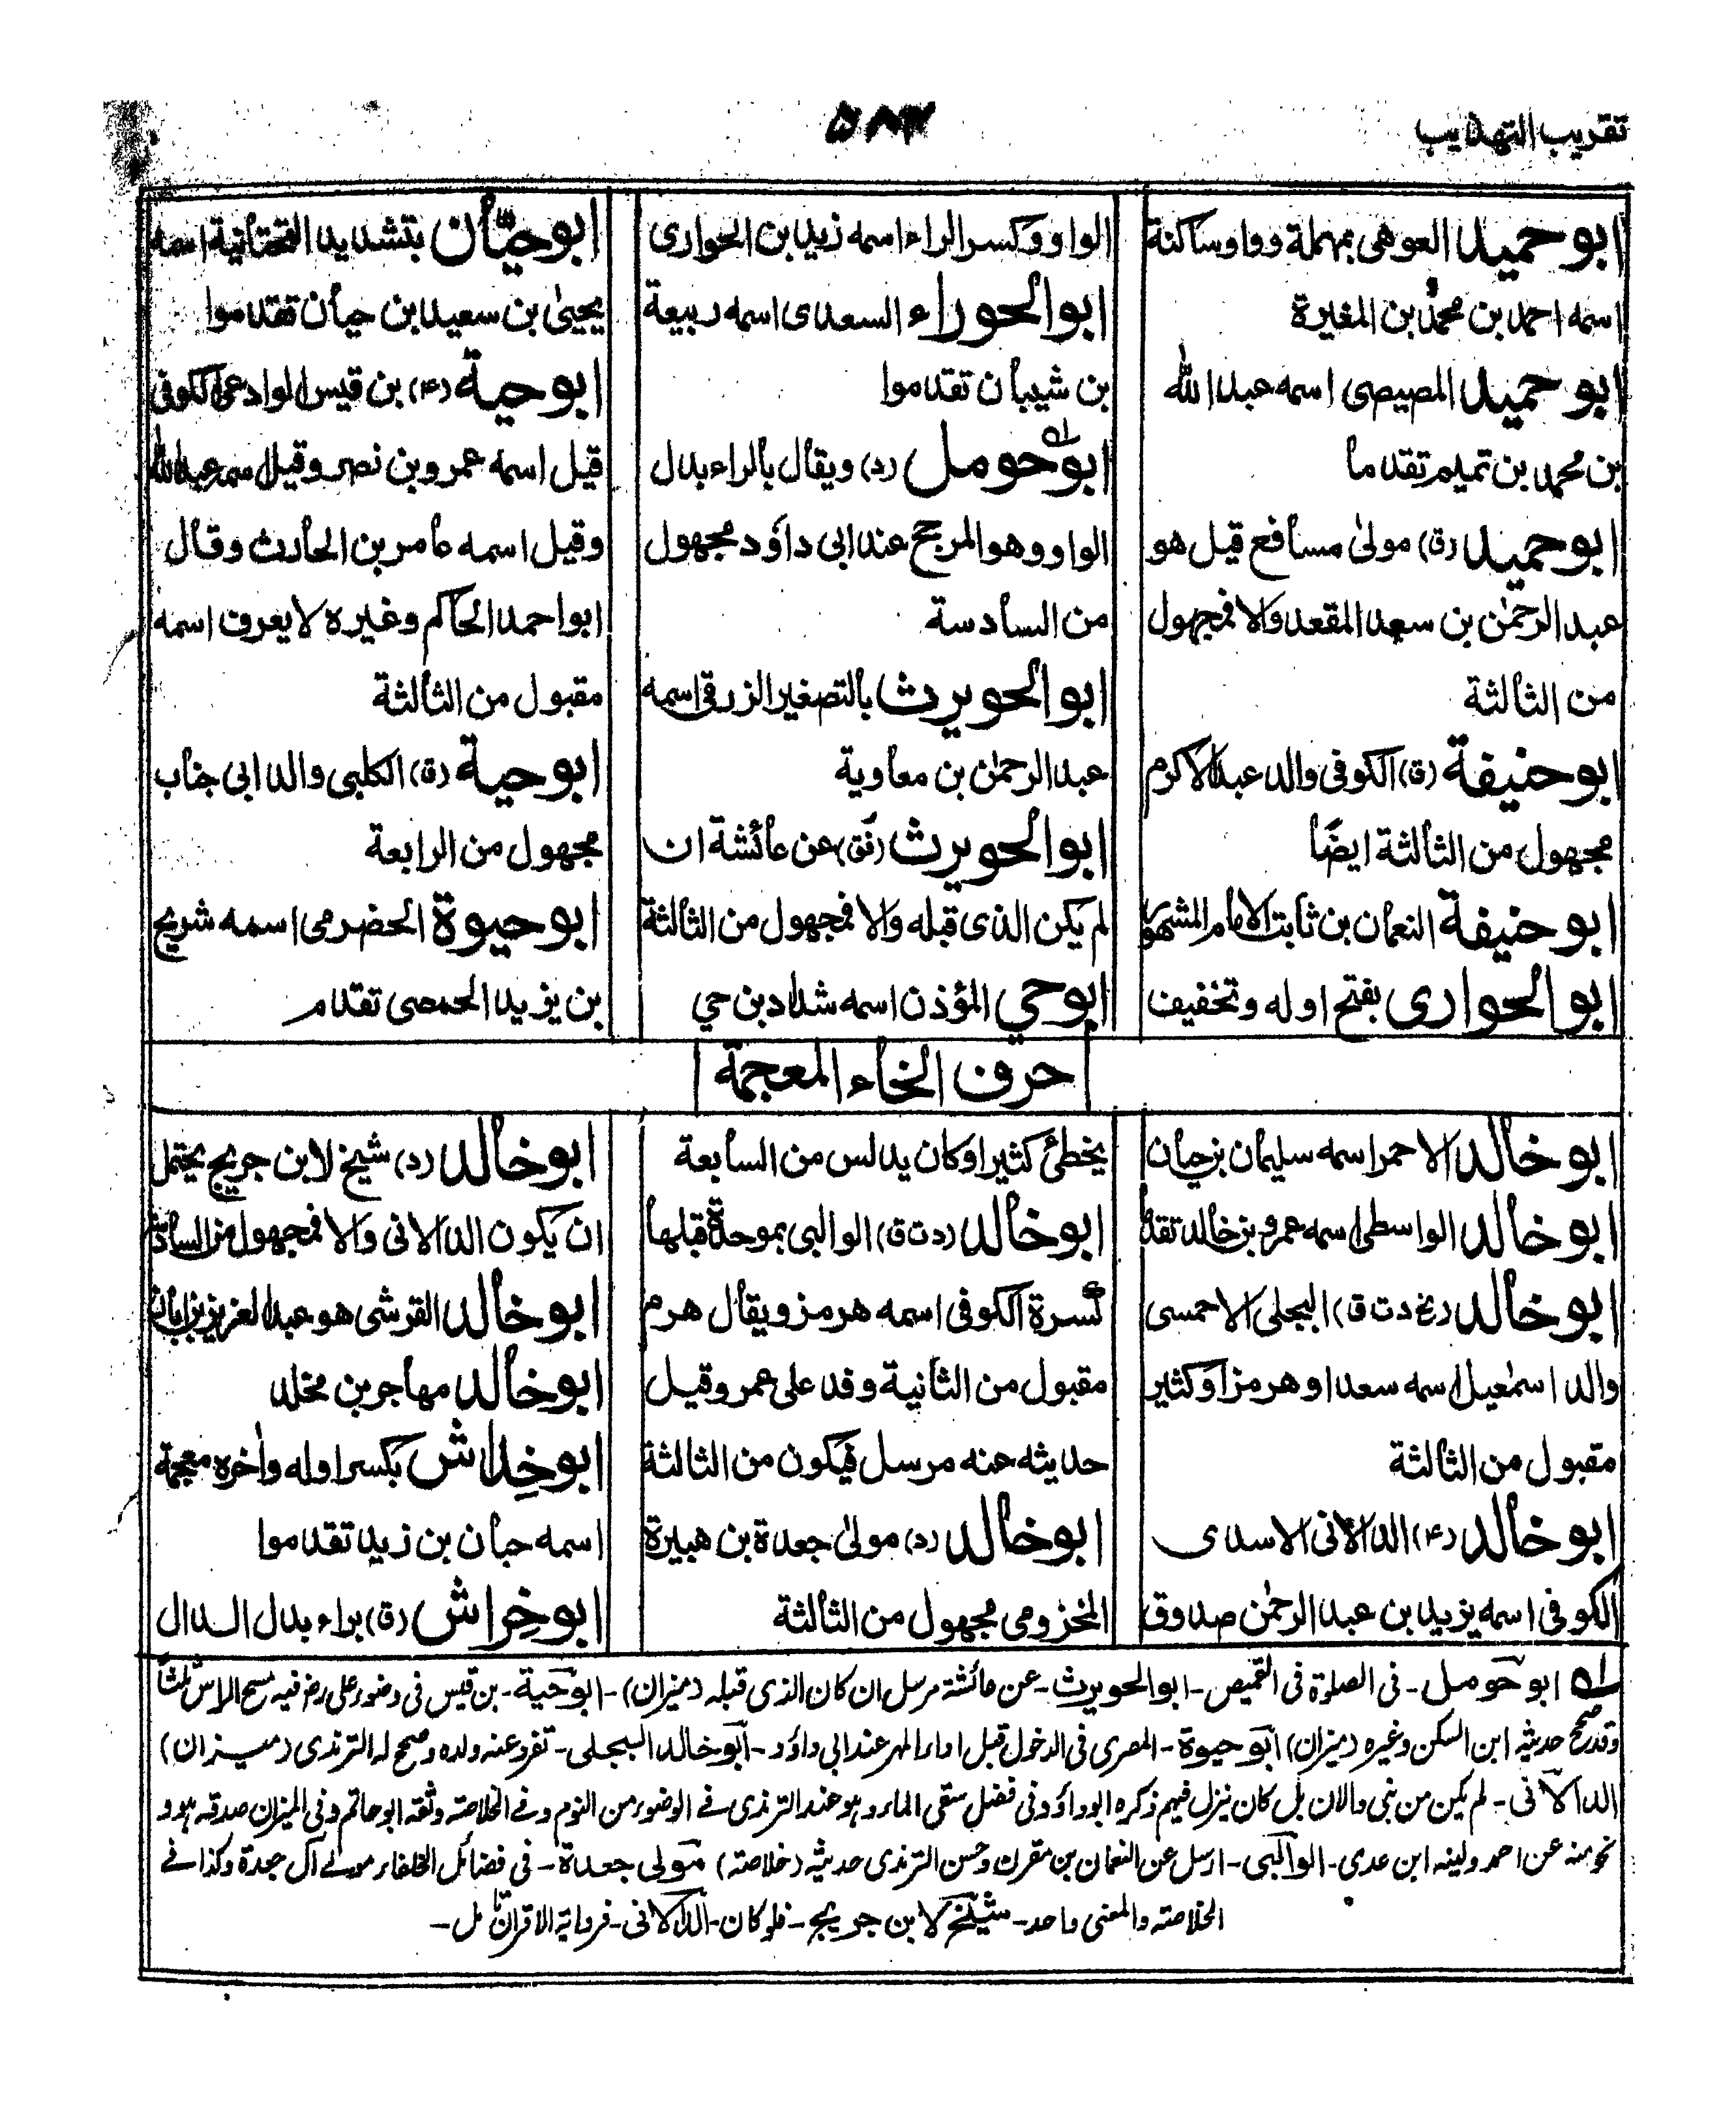 تقريب التهذيب
۵۸۳
ابو حميد العوهى بمهملة وواو ساكنة
اسمه احمد بن محمد بن المغيرة
ابو حميد المصيصى اسمه عبد الله
بن محمد بن تميم تقدما
ابو حميد (ق) مولىٰ مسافع قيل هو
عبد الرحمٰن بن سعد المقعد والا فمجهول
من الثالثة
ابو حنيفة (ق) الكوفى والد عبد الاكرم
مجهول من الثالثة ايضًا
ابو حنيفة النعمان بن ثابت الامام المشهور
ابو الحوارى بفتح اوله وتخفيف
الواو وكسر الراء اسمه زيد بن الحوارى
ابو الحوراء السعدى اسمه ربيعة
بن شيبان تقدموا
ابو حومل (د) ويقال بالراء بدل
الواو وهو المرجح عند ابى داؤد مجهول
من السادسة
ابو الحويرث بالتصغير الزرقى اسمه
عبد الرحمٰن بن معاوية
ابو الحويرث (فق) عن عائشة ان
لم يكن الذى قبله والا فمجهول من الثالثة
ابو حي المؤذن اسمه شداد بن حي
ابو حيّان بتشديد التحتانية اسمه
يحيىٰ بن سعيد بن حيان تقدموا
ابو حية (۴) بن قيس الوادعى الكوفى
قيل اسمه عمرو بن نصر وقيل اسمه عبد الله
وقيل اسمه عامر بن الحارث وقال
ابو احمد الحاكم وغيره لا يعرف اسمه
مقبول من الثالثة
ابو حية (ق) الكلبى والد ابى جناب
مجهول من الرابعة
ابو حيوة الحضرمى اسمه شريح
بن يزيد الحمصى تقدم
حرف الخاء المعجمة
ابو خالد الاحمر اسمه سليمان بن حيان
ابو خالد الواسطى اسمه عمرو بن خالد تقدما
ابو خالد (بخ د ت ق) البجلى الاحمسى
والد اسمٰعيل اسمه سعد او هرمز او كثير
مقبول من الثالثة
ابو خالد (۴) الدالانى الاسدى
الكوفى اسمه يزيد بن عبد الرحمٰن صدوق
يخطئ كثيرا وكان يدلس من السابعة
ابو خالد (د ت ق) الوالبى بموحدة قبلها
كسرة الكوفى اسمه هرمز ويقال هرم
مقبول من الثانية وفد على عمر وقيل
حديثه عنه مرسل فيكون من الثالثة
ابو خالد (د) مولىٰ جعدة بن هبيرة
المخزومى مجهول من الثالثة
ابو خالد (د) شيخ لابن جريج يحتمل
ان يكون الدالانى والا فمجهول من السادسة
ابو خالد القرشى هو عبد العزيز بن ابان
ابو خالد مهاجر بن مخلد
ابو خِداش بكسر اوله واٰخره معجمة
اسمه حبان بن زيد تقدموا
ابو خِراش (ق) براء بدل الدال
له ابو حومل - فى الصلوٰة فى القميص - ابو الحويرث - عن عائشة مرسل ان كان الذى قبله (ميزان) - ابو حية - بن قيس فى وضوء على رض فيه مسح الراس ثلثًا
وقد صحح حديثه ابن السكن وغيره (ميزان) ابو حيوة - المصرى فى الدخول قبل اداء المهر عند ابى داؤد - ابو خالد البجلى - تفرد عنه ولده وصحح له الترمذى (ميزان)
الدالانى - لم يكن من بنى دالان بل كان ينزل فيهم ذكره ابو داؤد فى فضل سقى الماء وهو عند الترمذى فى الوضوء من النوم وفى الخلاصه وثقه ابو حاتم وفى الميزان صدقه هو و
نحو منه عن احمد ولينه ابن عدى - الوالبى - ارسل عن النعمان بن مقرن وحسن الترمذى حديثه (خلاصه) مولى جعدة - فى فضائل الخلفاء مولى آل جعدة وكذا فى
الخلاصه والمعنى واحد - شيخ لابن جريج - فلو كان - الدالانى - فرواية الاقران مل -